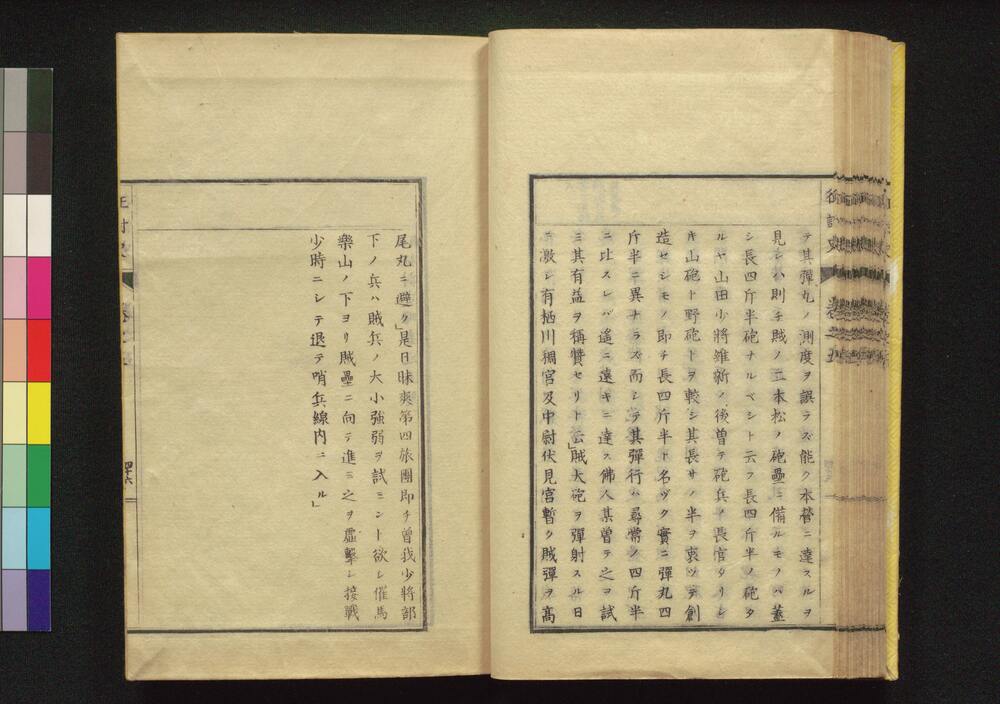 テ其彈丸ノ測度ヲ誤ラズ能ク本營ニ達スルヲ
見レハ則チ賊ノ二本松ノ砲壘ニ備ルモノハ蓋
シ長四斤半砲ナルベシト云フ長四斤半ノ砲タ
ルヤ山田少將維新ノ後曽テ砲兵ノ長官タリシ
キ山砲ト野砲トヲ較シ其長サノ半ヲ衷ツテ創
造セシモノ即チ長四斤半ト名ヅク實ニ彈丸四
斤半ニ異ナラズ而シテ其彈行ハ尋常ノ四斤半
ニ比スレバ遙ニ遠キニ達ス佛人某曽テ之ヲ試
ミ其有益ヲ稱贊セリト云」賊大砲ヲ彈射スル日
ニ激シ有栖川親宮及中尉伏見宮暫ク賊彈ヲ高
尾丸ニ避ク」是日昧爽第四旅團即チ曽我少將部
下ノ兵ハ賊兵ノ大小強弱ヲ試ミント欲シ催馬
樂山ノ下ヨリ賊壘ニ向テ進ミ之ヲ虛擊シ接戰
少時ニシテ退テ哨兵線内ニ入ル」